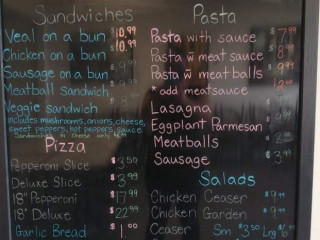 Sandwiches
Veal on a bun $10.99
Chicken on a bun $10.99
Sausage on a bun
Meatball Sandwich
Veggie sandwich
includes mushrooms, onions, cheese,
sweet peppers, hot peppers, sauce
Pizza
Pepperoni Slice $3.50
Deluxe Slice $3.99
18" Pepperoni $17.99
18" Deluxe $22.99
Garlic Bread $1.00
Pasta
Pasta with sauce $7.99
Pasta w̄ meat sauce
Pasta w̄ meatballs
* add meatsauce
Lasagna
Eggplant Parmesan
Meatballs
Sausage
Salads
Chicken Ceaser $9.99
Chicken Garden $9.99
Ceaser Sm $3.50 Lrg